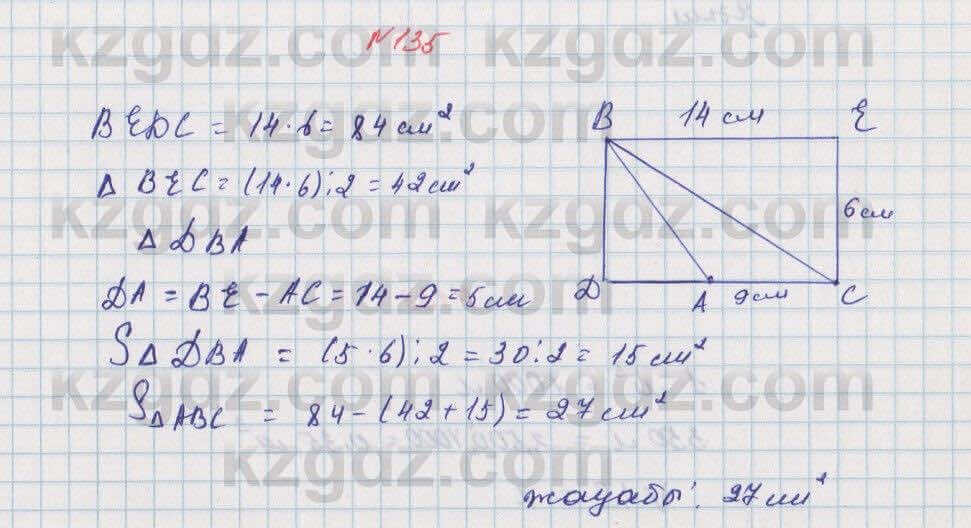 №135
BEDC = 14·6 = 84 см²
Δ BEC = (14·6):2 = 42 см²
Δ DBA
DA = BE - AC = 14 - 9 = 5 см
SΔ DBA = (5·6):2 = 30:2 = 15 см²
SΔABC = 84 - (42+15) = 27 см²
жауабы: 27 см²
B 14 см E
6 см
D A 9 см C
kzgdz.com kzgdz.com
kzgdz.com kzgdz.com
kzgdz.com kzgdz.com
kzgdz.com
kzgdz.com kzgdz.com
kzgdz.com